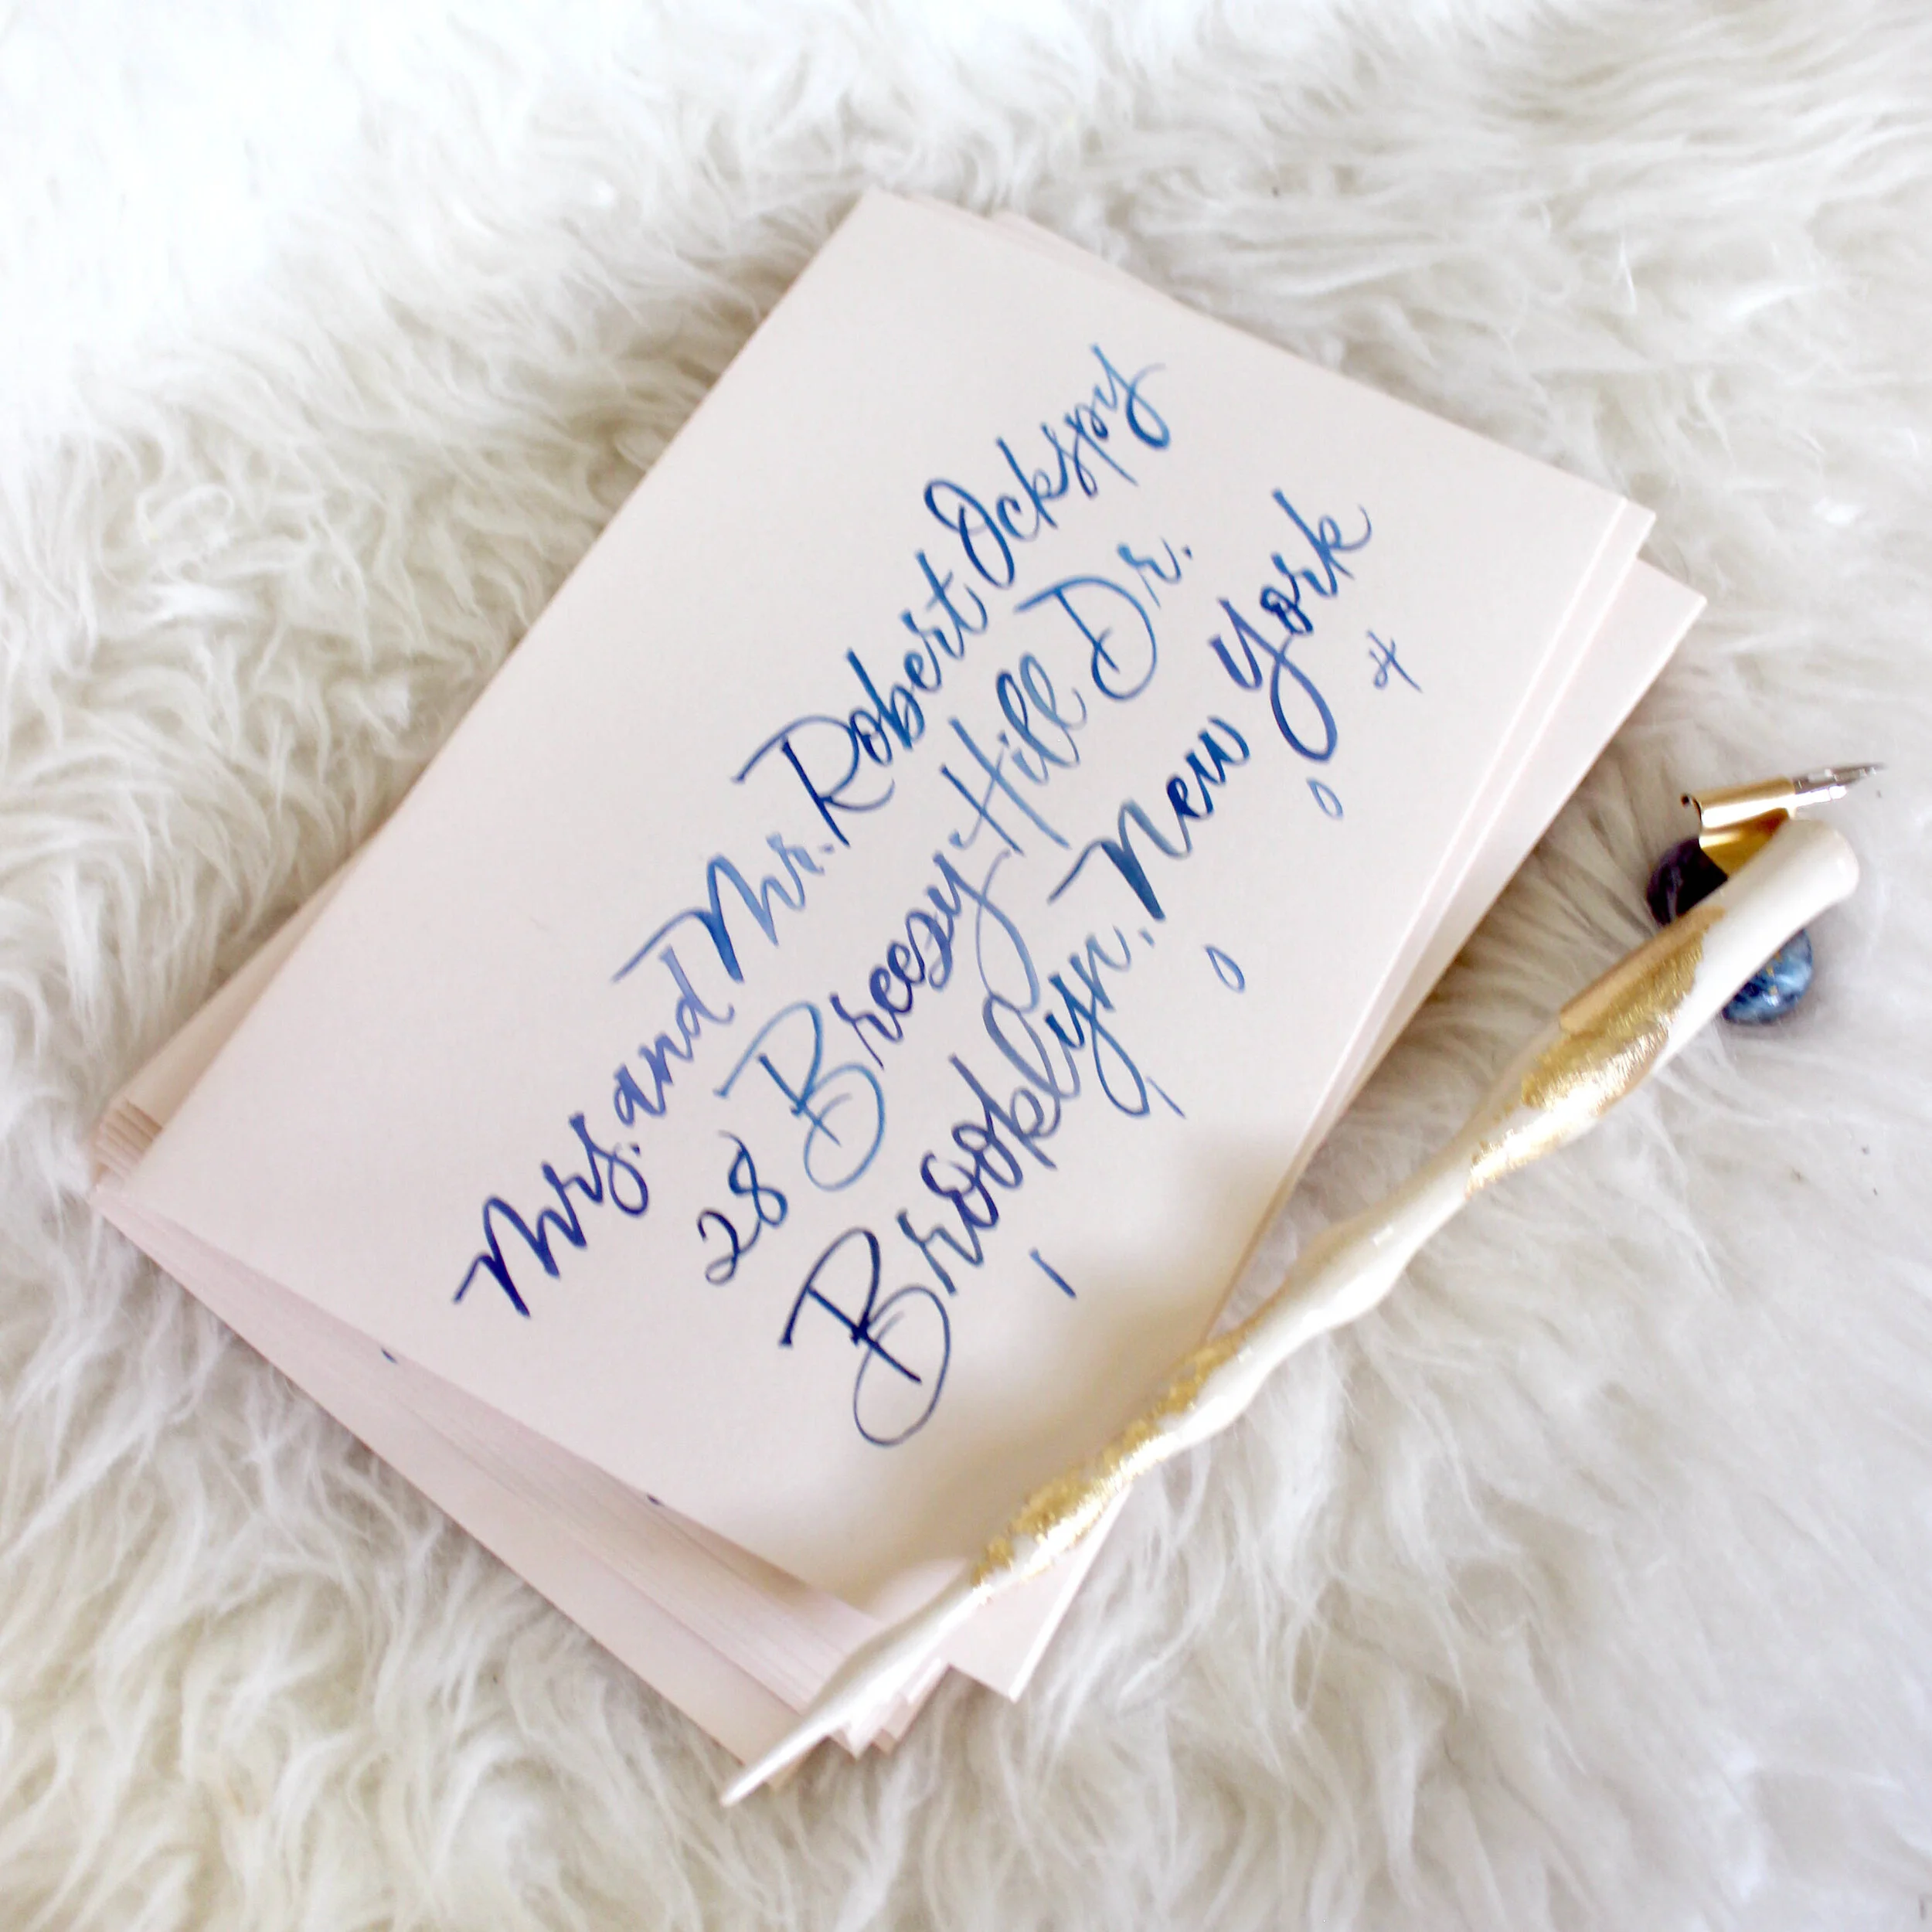 Mrs. and Mr. Robert Ockspy
28 Breezy Hill Dr.
Brooklyn, New York
1 0 0 4